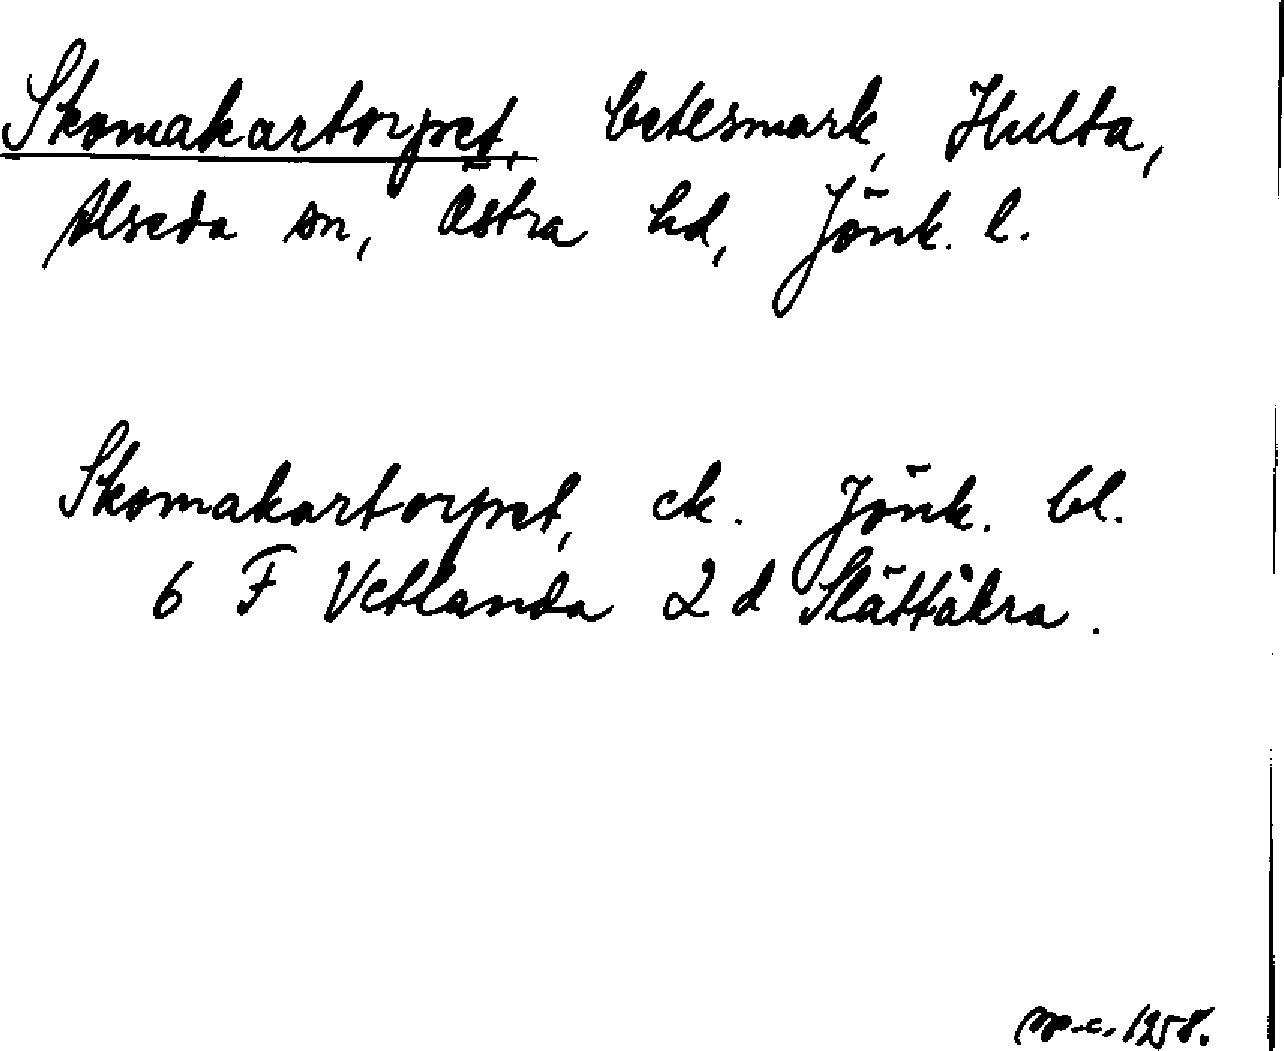 Skomakartorpet, betesmark, Hulta,
Alseda sn, Östra hd, Jönk. l.
Skomakartorpet, ek. Jönk. bl.
6 F Vetlanda 2 d Slättåkra.
1958.